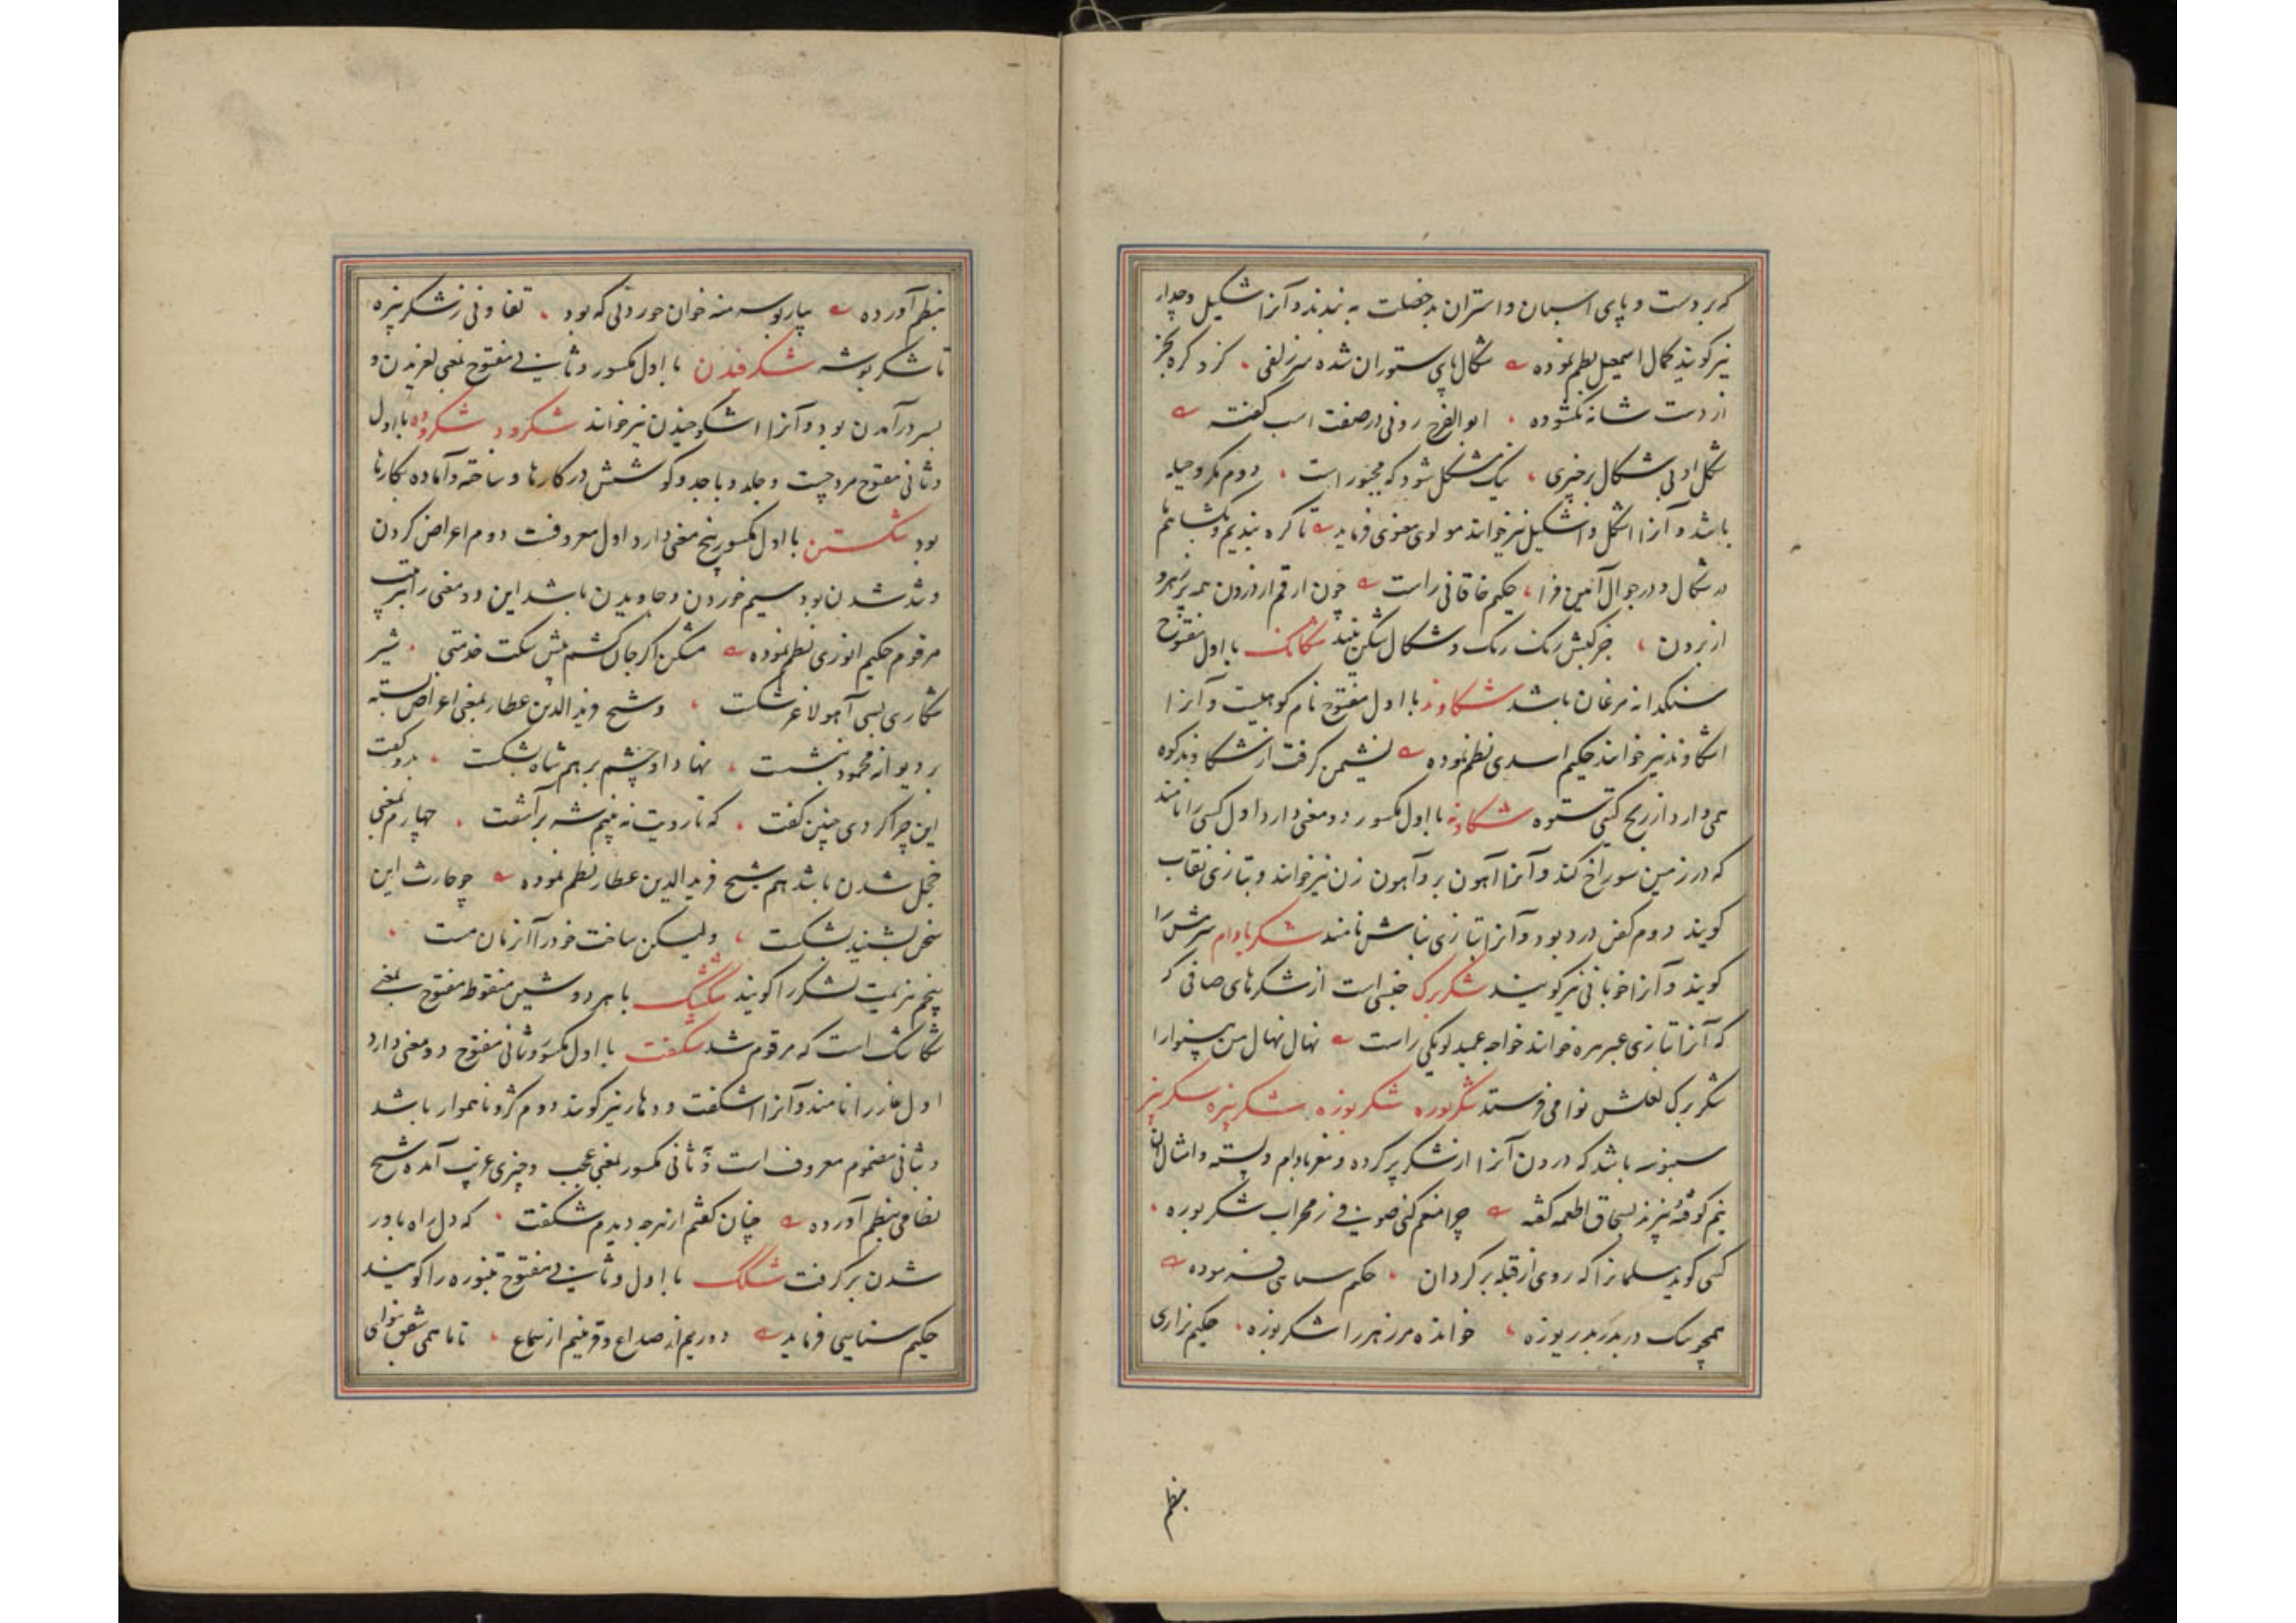 که بر دست و پای اسپان و استران بدخصلت به بندند و آنرا اشکیل و چدار
نیز گویند کمال اسمعیل نظم نموده شکال پای ستوران شده سر زلفی گره بجز
از دست شانه نکشوده ابوالفرج رونی در صفت اسب گفته
شکل او بی شکال نیک مشکل شود که مجبور است دوم مکر و حیله
باشد و آنرا اشکل و اشکیل نیز خوانند مولوی معنوی فرماید تا گره بندیم و بکشاییم
در شکال و در جواب آئین فزا حکیم خاقانی راست چون ارقم از درون همه زهر و
از برون جز کبش رنگ رنگ و شکال شکن نیند شکانک با اول مفتوح
سنگدانه مرغان باشد شکاوند با اول مفتوح نام کوهیست و آنرا
اشکاوند نیز خوانند حکیم اسدی نظم نموده نشیمن گرفت از شکاوند کوه
همی دارد از رنج گیتی ستوه شکاونه با اول مکسور دو معنی دارد اول کسی را نامند
که در زمین سوراخ کند و آنرا آهون بر و آهون زن نیز خوانند و بتازی نقاب
گویند دوم کفن دزد بود و آنرا بتازی نباش نامند شکر بادام
گویند و آنرا خوبانی نیز گویند شکر برگ جنسی است از شکرهای صافی که
که آنرا بتازی خوانند خواجه عمید لویکی راست نهال نهال من بینوا را
شکر برگ لعلش نوا می فرستد شکربوره شکر بوزه شکر پنیره شکر پنیر
سنبوسه باشد که درون آنرا از شکر پر کرده و مغز بادام و پسته و امثال آن
نیم کوفته پزند بسحاق اطعمه گفته چرا منعم کنی صوفی ز محراب شکر بوره
کسی گوید مسلمانرا که روی از قبله برگردان حکیم سنایی فرموده
همچو سگ در بدر بدریوزه خوانده مر زهر را شکر بوزه حکیم نزاری
بنظم
بنظم آورده بیار بوسه منه خوان خوردنی که بود تفاوتی ز شکر پنیره
تا شکر بوشه شکرفیدن با اول مکسور و ثانی مفتوح بمعنی لغزیدن و
بسر در آمدن بود و آنرا اشکوخیدن نیز خوانند شکرد شکرده با اول
و ثانی مفتوح مرد چست و جلد و با جد و کوشش در کارها و ساخته و آماده بکارها
بود شکستن با اول مکسور پنج معنی دارد اول معروفست دوم اعراض کردن
و تند شدن بود سیم خوردن و جاویدن باشد این دو معنی را بترتیب
مرقوم حکیم انوری نظم نموده مشکن اگر جان کشم پیش سگت خدمتی شیر
شکاری بسی آهو لاغر شکست و شیخ فرید الدین عطار بمعنی اعراض بسته
بر دیوانه محمود بنشست نهاد او چشم بر هم شاه بشکست بدو گفت
این چرا کردی چنین گفت که تا رویت نه بینم شه بر آشفت چهارم بمعنی
خجل شدن باشد هم شیخ فرید الدین عطار نظم نموده چو حارث این
سخن بشنید بشکست ولیکن ساخت خود را آنزمان مست
پنجم هزیمت لشکر را گویند شکشک با هر دو شین منقوطه مفتوح بمعنی
شکاشک است که مرقوم شد شکفت با اول مکسور و ثانی مفتوح دو معنی دارد
اول غار را نامند و آنرا اشکفت و دهار نیز گویند دوم کژ و ناهموار باشد
و بثانی مضموم معروف است و به ثانی مکسور بمعنی عجب و چیزی غریب آمده شیخ
نظامی بنظم آورده چنان گفتم از هرچه دیدم شکفت که دل راه باور
شدن بر گرفت شکک با اول و ثانی مفتوح تنبوره را گویند
حکیم سنایی فرماید دوریم از صداع و قرینیم از سماع تا ما همی